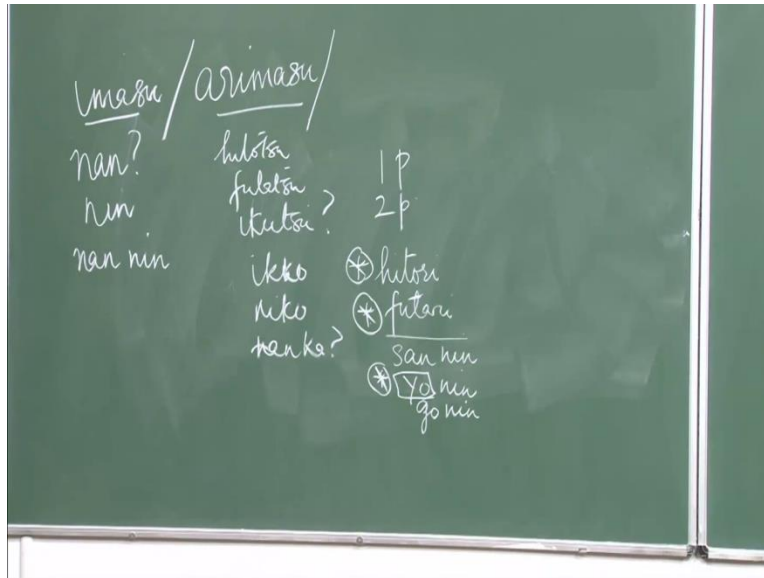 imasu / arimasu /
nan?
nin
nan nin
hitotsu
futatsu
ikutsu?
ikko
niko
nanko?
1 p
2 p
* hitori
* futari
san nin
* yo nin
go nin